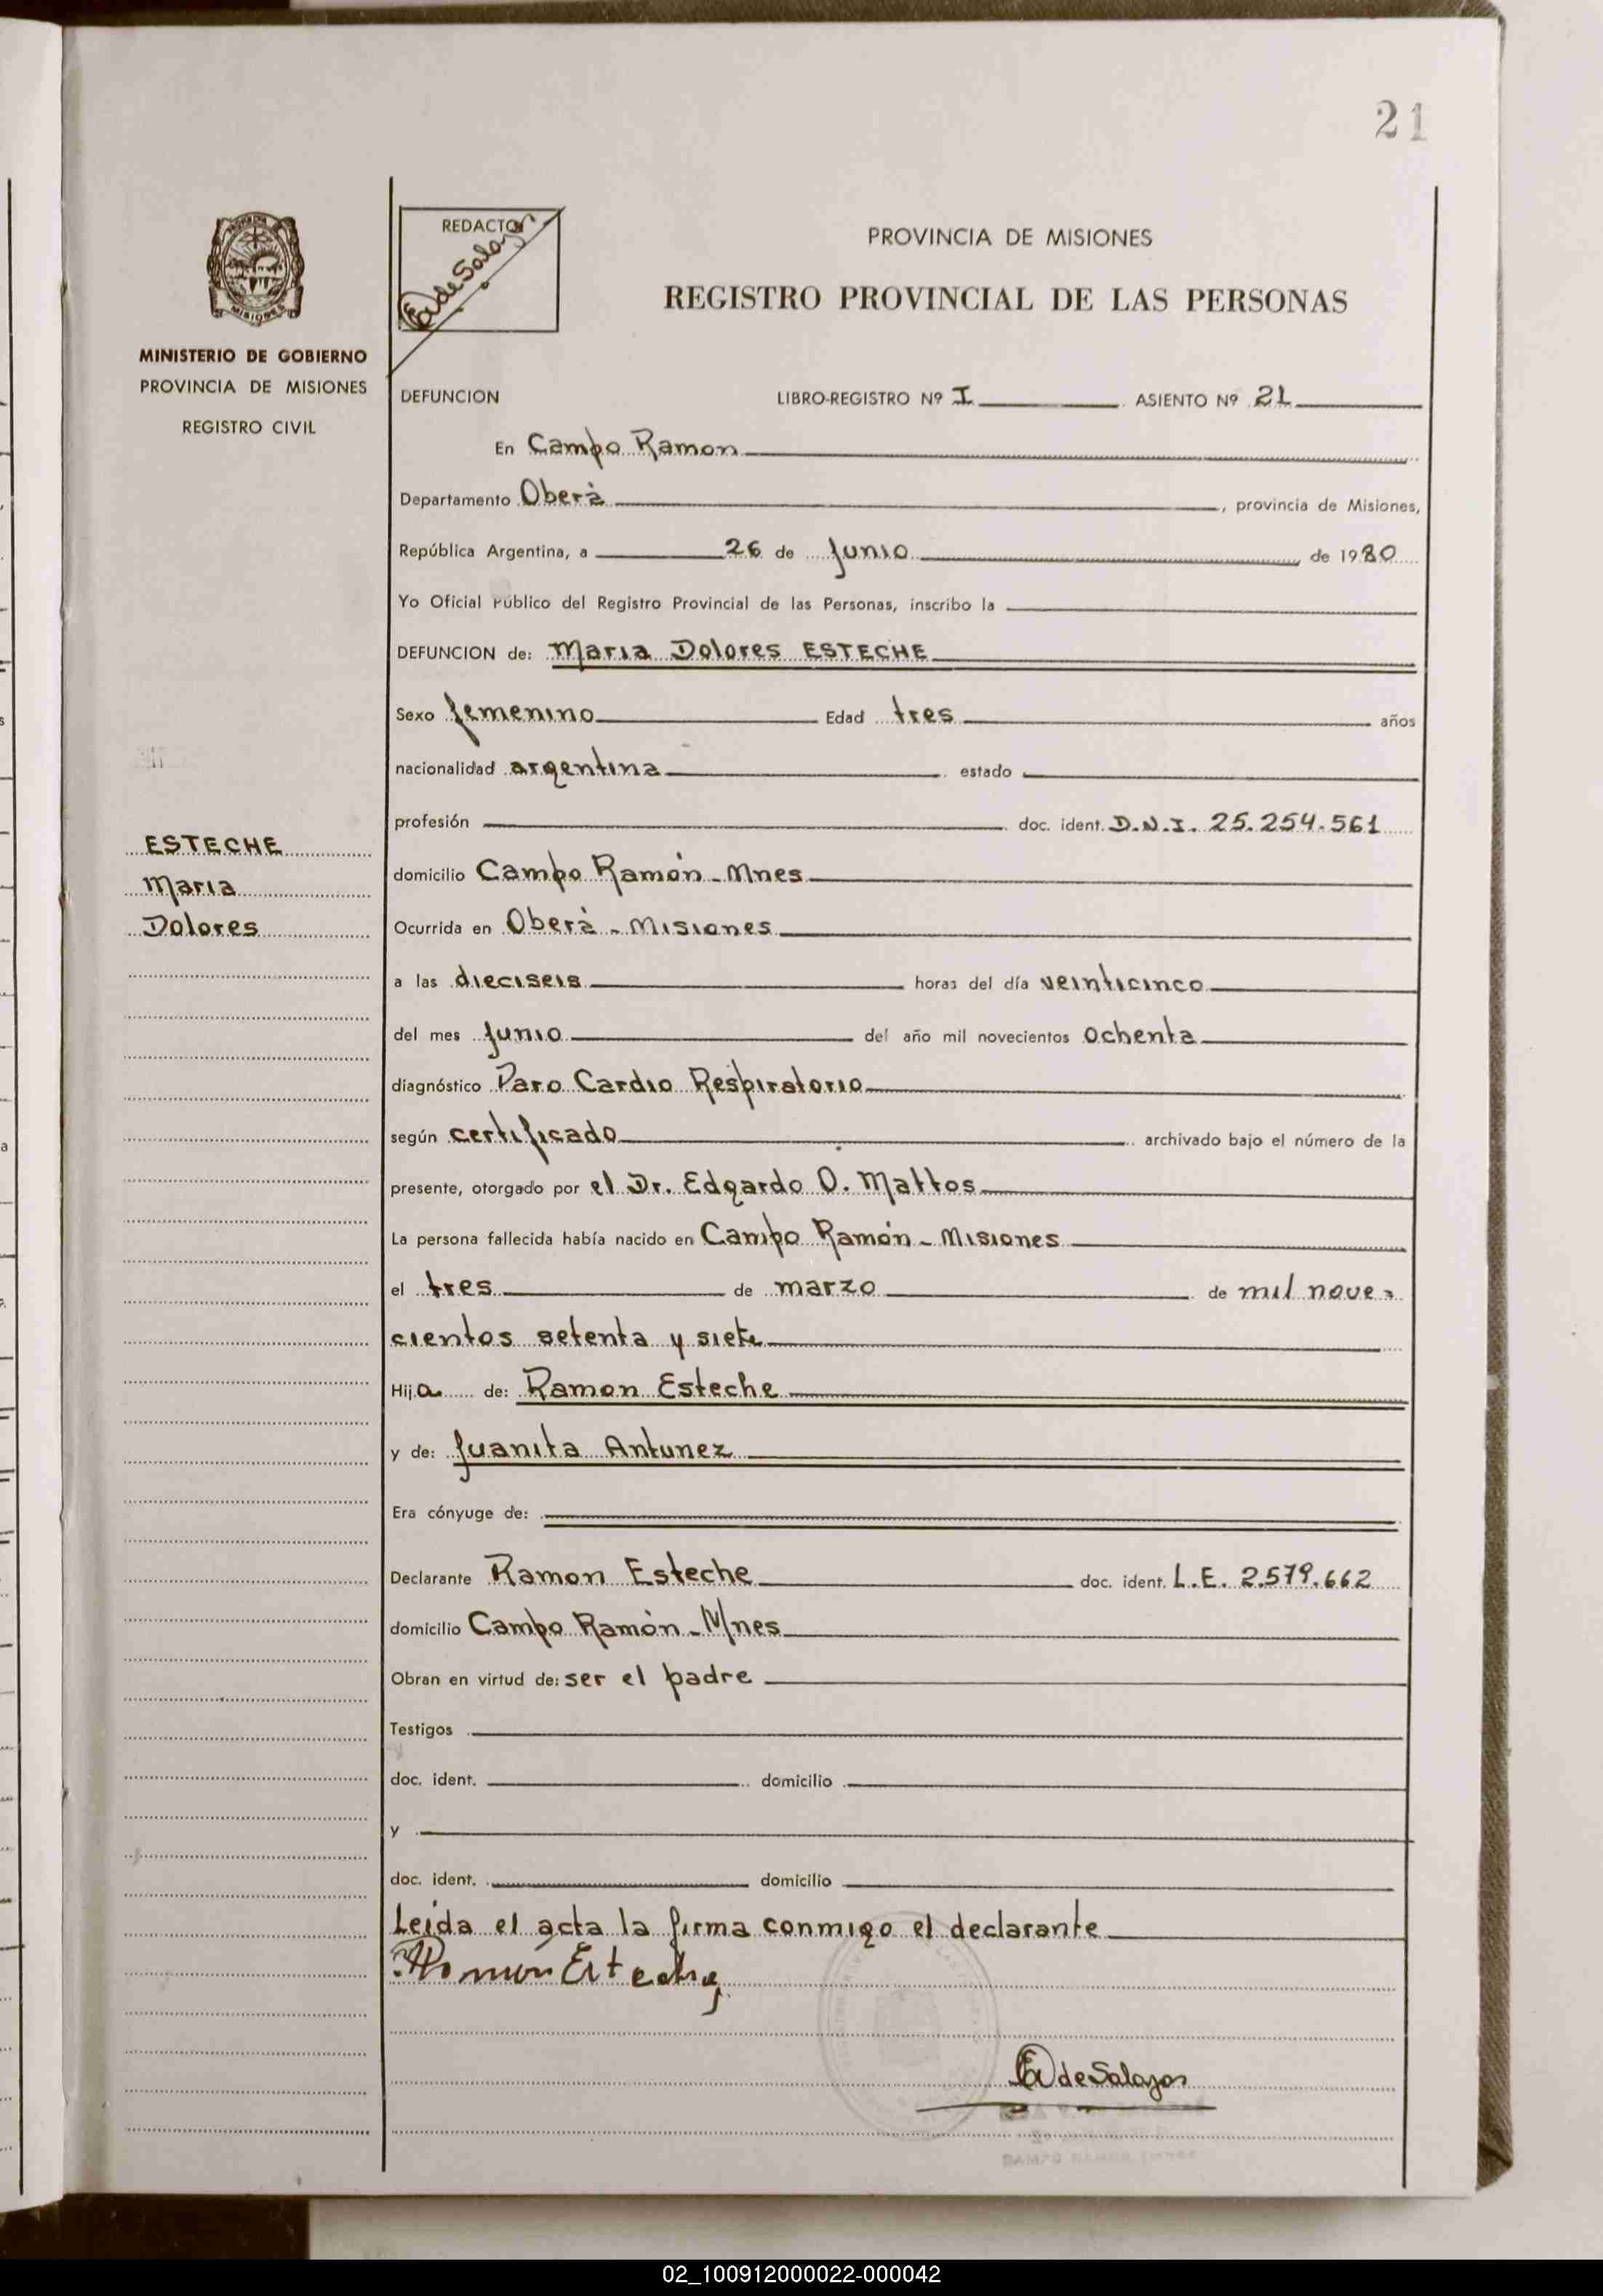 21
MINISTERIO DE GOBIERNO
PROVINCIA DE MISIONES
REGISTRO CIVIL
REDACTOR
EA de Salazar
PROVINCIA DE MISIONES
REGISTRO PROVINCIAL DE LAS PERSONAS
DEFUNCION LIBRO-REGISTRO Nº I ASIENTO Nº 21
En Campo Ramon
Departamento Oberà, provincia de Misiones,
República Argentina, a 26 de Junio de 1980
Yo Oficial Público del Registro Provincial de las Personas, inscribo la
DEFUNCION de: Maria Dolores ESTECHE
Sexo femenino Edad tres años
nacionalidad argentina estado
profesión doc. ident. D.N.I. 25.254.561
ESTECHE
Maria
Dolores
domicilio Campo Ramón - Mnes
Ocurrida en Oberà - Misiones
a las dieciseis horas del día veinticinco
del mes Junio del año mil novecientos ochenta
diagnóstico Paro Cardio Respiratorio
según certificado archivado bajo el número de la
presente, otorgado por el Dr. Edgardo O. Mattos
La persona fallecida había nacido en Campo Ramón - Misiones
el tres de marzo de mil nove-
cientos setenta y siete
Hija de: Ramon Esteche
y de: Juanita Antunez
Era cónyuge de:
Declarante Ramon Esteche doc. ident. L.E. 2.579.662
domicilio Campo Ramòn - Mnes
Obran en virtud de: ser el padre
Testigos
doc. ident. domicilio
y
doc. ident. domicilio
Leida el acta la firma conmigo el declarante
Ramón Esteche
EA de Salazar
02_100912000022-000042